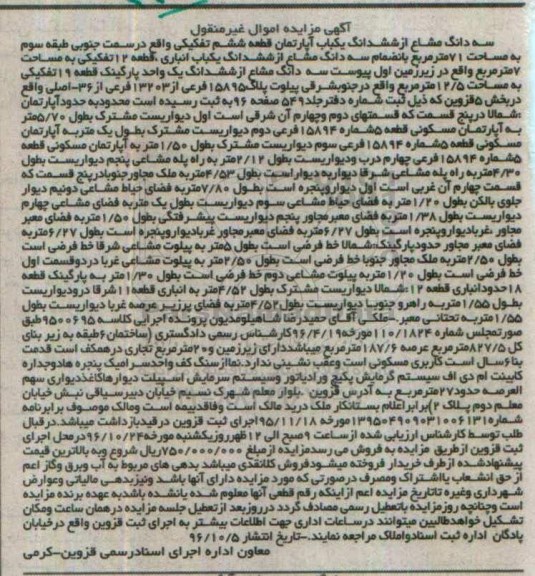 آگهی مزایده اموال غیرمنقول
سه دانگ مشاع ازششدانگ یکباب آپارتمان قطعه ششم تفکیکی واقع درسمت جنوبی طبقه سوم
به مساحت ۷۱مترمربع بانضمام سه دانگ مشاع ازششدانگ یکباب انباری قطعه ۱۲تفکیکی به مساحت
۷مترمربع واقع در زیرزمین اول پیوست سه دانگ مشاع ازششدانگ یک واحد پارکینگ قطعه ۱۹تفکیکی
به مساحت ۱۲/۵مترمربع واقع درجنوبشرقی پیلوت پلاک۱۵۸۹۵فرعی از۱۳۲۰۳فرعی از۳۶-اصلی واقع
دربخش ۵قزوین که ذیل ثبت شماره دفترجلد۵۴۹ صفحه ۹۶به ثبت رسیده است محدودبه حدودآپارتمان
:شمالا درپنج قسمت که قسمتهای دوم وچهارم آن شرقی است اول دیواریست مشترک بطول ۵/۷۰متر
به آپارتمان مسکونی قطعه ۵شماره ۱۵۸۹۴فرعی دوم دیواریست مشترک بطول یک متربه آپارتمان
مسکونی قطعه ۵شماره ۱۵۸۹۴فرعی سوم دیواریست مشترک بطول ۱/۵۰متر به آپارتمان مسکونی قطعه
۵شماره ۱۵۸۹۴فرعی چهارم درب ودیواریست بطول ۲/۱۲متر به راه پله مشاعی پنجم دیواریست بطول
۴/۳۰متربه راه پله مشاعی شرقا دیواربه دیواراست بطول ۴/۵۳متربه ملک مجاورجنوبادرپنج قسمت که
قسمت چهارم آن غربی است اول دیواروپنجره است بطول ۷/۸۰متربه فضای حیاط مشاعی دونیم دیوار
جلوی بالکن بطول ۱/۲۰متر به فضای حیاط مشاعی سوم دیواریست بطول یک متربه فضای مشاعی چهارم
دیواریست بطول ۱/۳۸متربه فضای معبرمجاور پنجم دیواریست پیشرفتگی بطول ۱/۵۰متربه فضای معبر
مجاور ،غربادیواروپنجره است بطول ۶/۲۷متربه فضای معبرمجاور غربادیواروپنجره است بطول ۶/۲۷متربه
فضای معبر مجاور حدودپارکینگ:شمالا خط فرضی است بطول ۵متر به پیلوت مشاعی شرقا خط فرضی است
بطول ۲/۵۰متربه ملک مجاور جنوبا خط فرضی است بطول ۲/۵۰متر به پیلوت مشاعی غربا دردوقسمت اول
خط فرضی است بطول ۱/۲۰متربه پیلوت مشاعی دوم خط فرضی است بطول ۱/۳۰متر به پارکینگ قطعه
۱۸حدودانباری قطعه ۱۲:شمالا دیواریست مشترک بطول ۴/۵۲متر به انباری قطعه۱۱شرقا دردیواریست
بطول ۱/۵۵متربه راهرو جنوبا دیواریست بطول۴/۵۲متربه فضای پرزیر عرصه غربا دیواریست بطول
۱/۵۵متربه تحتانی معبر -ملکی آقای حمیدرضا شاهیلومدیون پرونده اجرائی کلاسه ۹۵۰۰۶۹۵طبق
صورتمجلس شماره ۱۱۰/۱۸۲۴مورخه۹۶/۴/۱۹کارشناس رسمی دادگستری (ساختمان۶طبقه به زیر بنای
کل ۸۲۷/۵مترمربع عرصه ۱۸۷/۶ مترمربع میباشددارای زیرزمین و۲۰مترمربع تجاری درهمکف است قدمت
بنا۶سال است کاربری مسکونی است وعقب نشینی ندارد.نماازسنگ کف واحدسرامیک پنجره هادوجداره
کابینت ام دی اف سیستم گرمایش پکیج ورادیاتور وسیستم سرمایش اسپیلت دیوارهاکاغذدیواری سهم
العرصه حدود۲۷مترمربع به آدرس قزوین .بلوار معلم شهرک نسیم خیابان دبیرسیاقی نبش خیابان
معلم دوم پلاک ۲)برابراعلام بستانکار ملک درید مالک است وفاقدبیمه است ومالک موصوف برابرنامه
شماره۱۳۹۵۰۴۹۰۹۰۳۱۰۰۶۱۳۱مورخه۹۵/۱۱/۱۸اجرای ثبت قزوین در قیدبازداشت میباشد.در قبال
طلب توسط کارشناس ارزیابی شده ازساعت ۹صبح الی ۱۲ظهرروزیکشنبه مورخه۹۶/۱۰/۲۴درمحل اجرای
ثبت قزوین ازطریق مزایده به فروش می رسدمزایده از مبلغ ۷۵۰/۰۰۰/۰۰۰ریال شروع وبه بالاترین قیمت
پیشنهادشده ازطرف خریدار فروخته میشودفروش کلانقدی میباشد بدهی های مربوط به آب وبرق وگاز اعم
از حق انشعاب یااشتراک ومصرف درصورتی که مورد مزایده دارای آنها باشد ونیزبدهی مالیاتی وعوارض
شهرداری وغیره تاتاریخ مزایده اعم ازاینکه رقم قطعی آنها معلوم شده یانشده باشدبه عهده برنده مزایده
است وچنانچه روزمزایده باتعطیل رسمی مصادف گردد درروزبعد ازتعطیل جلسه مزایده درهمان ساعت ومکان
تشکیل خواهدطالبین میتوانند درساعات اداری جهت اطلاعات بیشتر به اجرای ثبت قزوین واقع درخیابان
پادگان اداره ثبت اسنادواملاک مراجعه نمایند.-تاریخ انتشار ۹۶/۱۰/۵
معاون اداره اجرای اسنادرسمی قزوین-کرمی